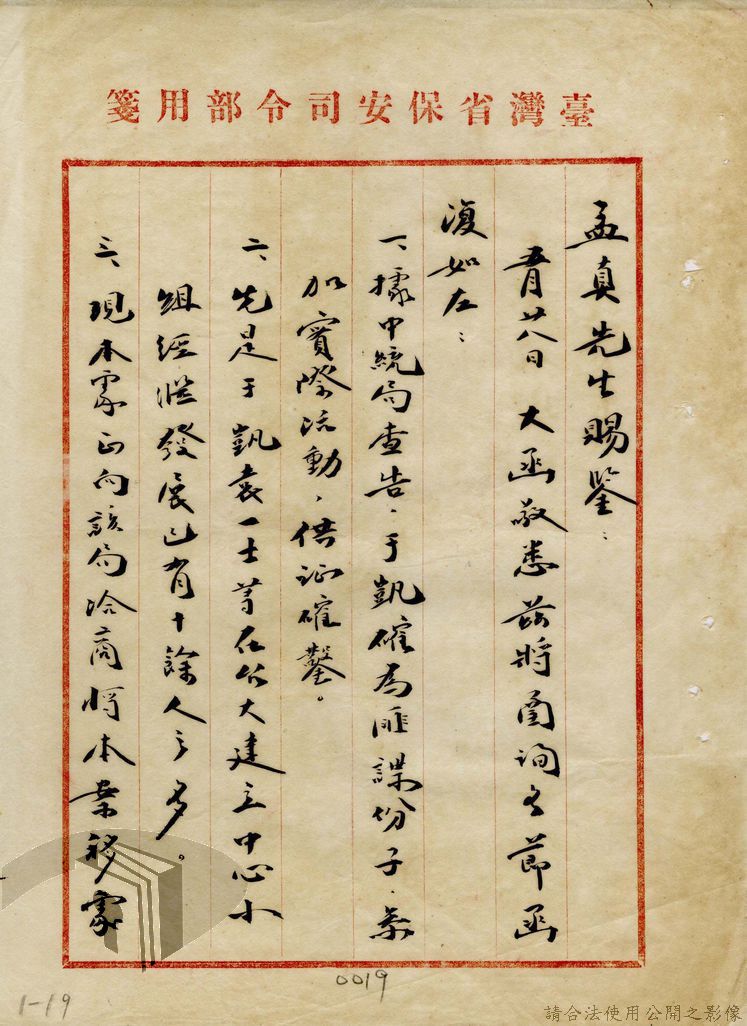 臺灣省保安司令部用箋
孟真先生賜鑒：
五月廿八日　大函敬悉茲將囑詢各節函
復如左：
一、據中統局查告，于凱確為匪諜份子，參
加實際活動，供証確鑿。
二、先是于凱袁一士等在台大建立中心小
組經繼發展已有十餘人之多。
三、現本處正向該局洽商將本案移處
0019
1-19
請合法使用公開之影像